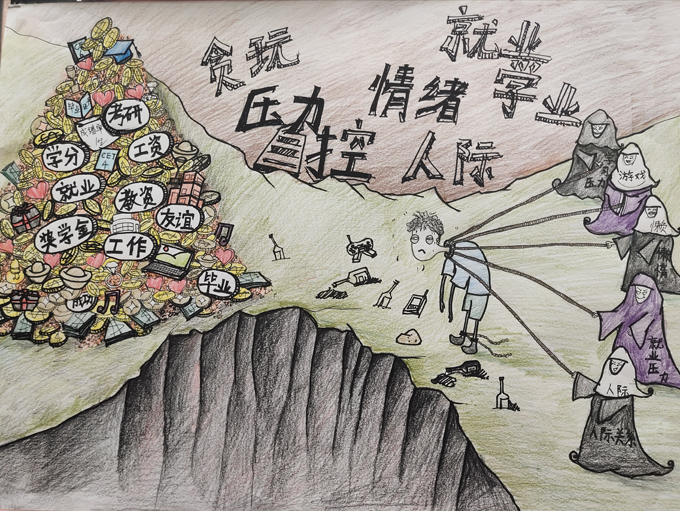 贪玩
就业
学业
压力
情绪
自控
人际
考研
学分
工资
CET
4
就业
教资
友谊
奖学金
工作
毕业
学业
压力
游戏
懒惰
情绪
就业
压力
人际
人际关系